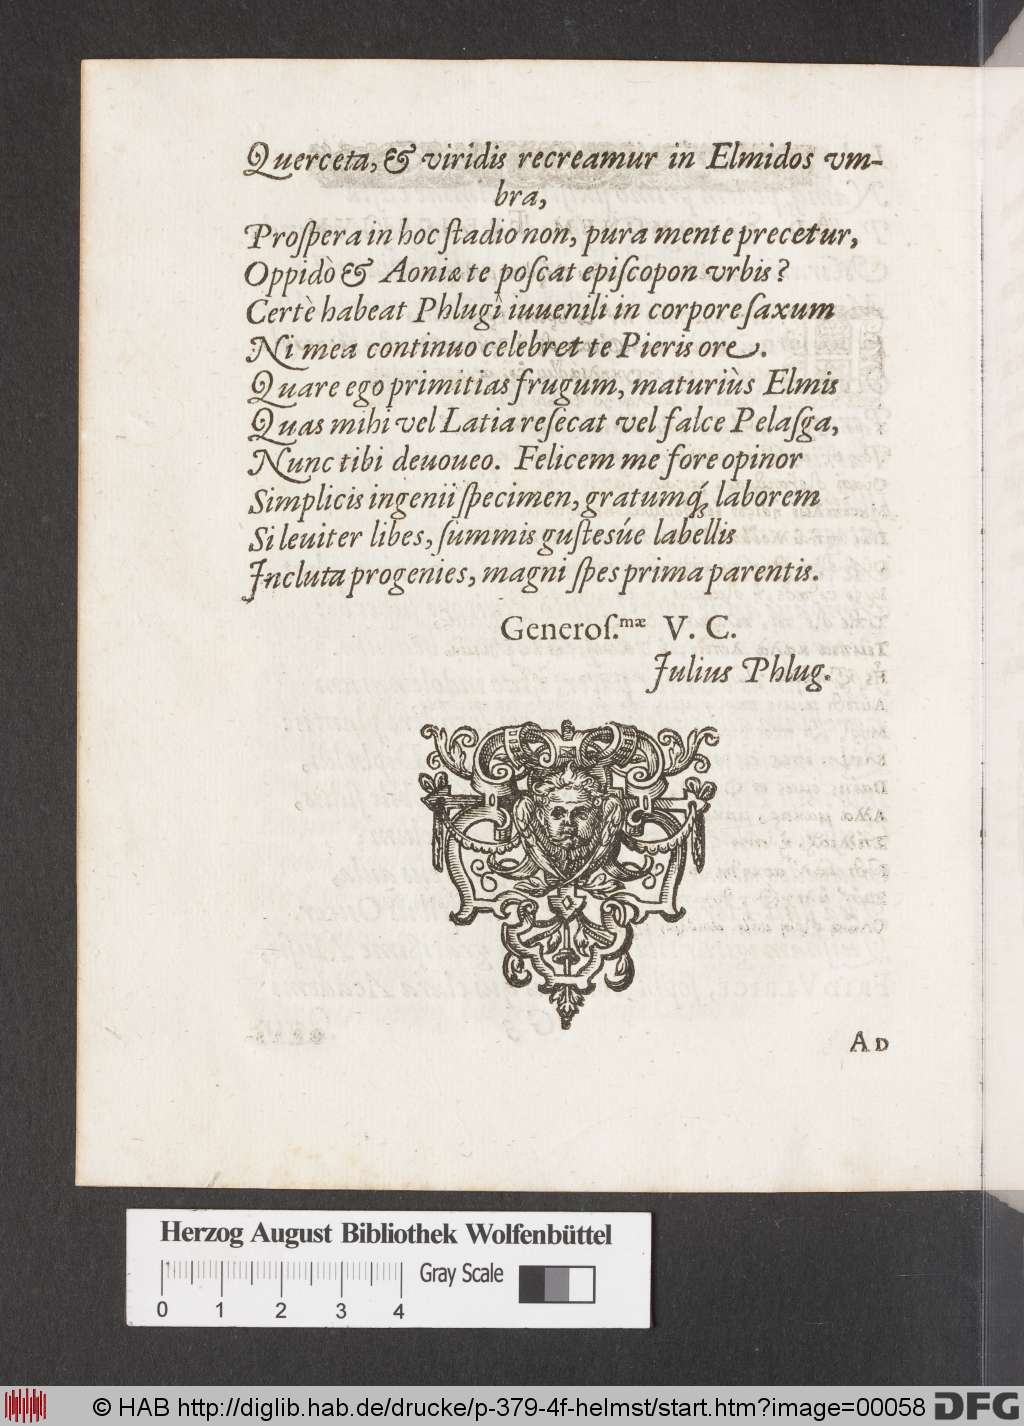 Querceta, & viridis recreamur in Elmidos vm-
bra,
Proſpera in hoc ſtadio non, pura mente precetur,
Oppidò & Aoniæ te poſcat epiſcopon vrbis?
Certè habeat Phlugî iuuenili in corpore ſaxum
Ni mea continuo celebret te Pieris ore.
Quare ego primitias frugum, maturiùs Elmis
Quas mihi vel Latia reſecat vel falce Pelaſga,
Nunc tibi deuoueo. Felicem me fore opinor
Simplicis ingenii ſpecimen, gratumq́; laborem
Si leuiter libes, ſummis guſteśue labellis
Incluta progenies, magni ſpes prima parentis.
Generoſ.mæ V. C.
Julius Phlug.
AD
Herzog August Bibliothek Wolfenbüttel
Gray Scale
0 1 2 3 4
© HAB http://diglib.hab.de/drucke/p-379-4f-helmst/start.htm?image=00058
DFG